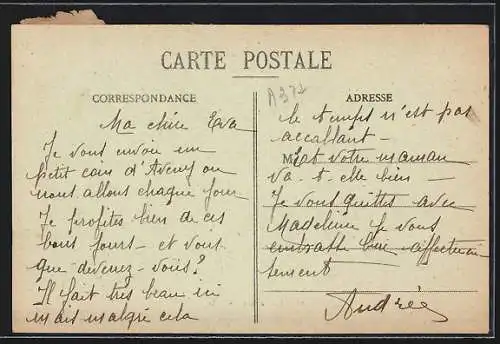 CARTE POSTALE
A372
CORRESPONDANCE
Ma chère Eva
Je vous envoie un
petit coin d'Aveny ou
nous allons chaque jour
Je profites bien de ces
bons jours - et vous
que devenez-vous?
Il fait très beau ici
mais malgré cela
ADRESSE
le temps n'est pas
accablant -
M
Et votre maman
va-t-elle bien -
Je vous quittes avec
Madeleine Je vous
embrasse bien affectueu
sement
Andrée